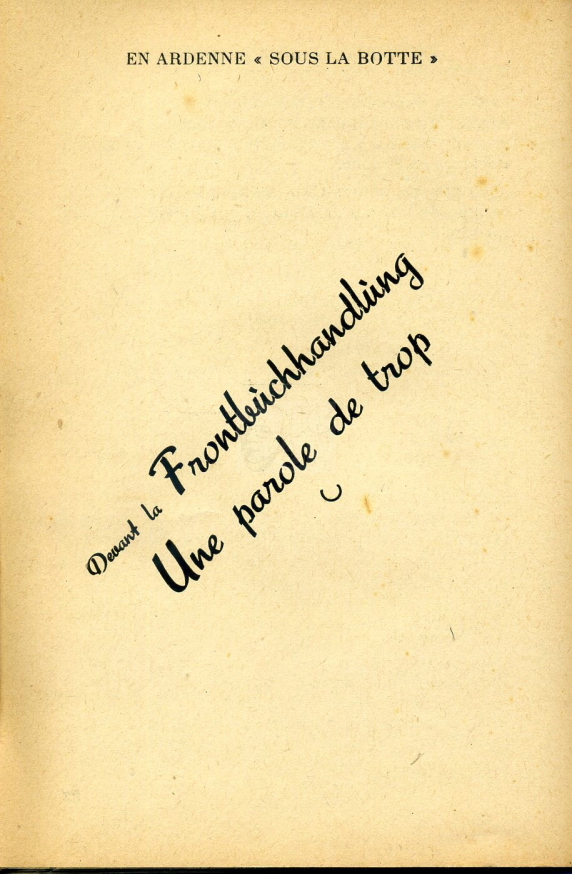 EN ARDENNE « SOUS LA BOTTE »
Devant la Frontbùchhandlùng
Une parole de trop